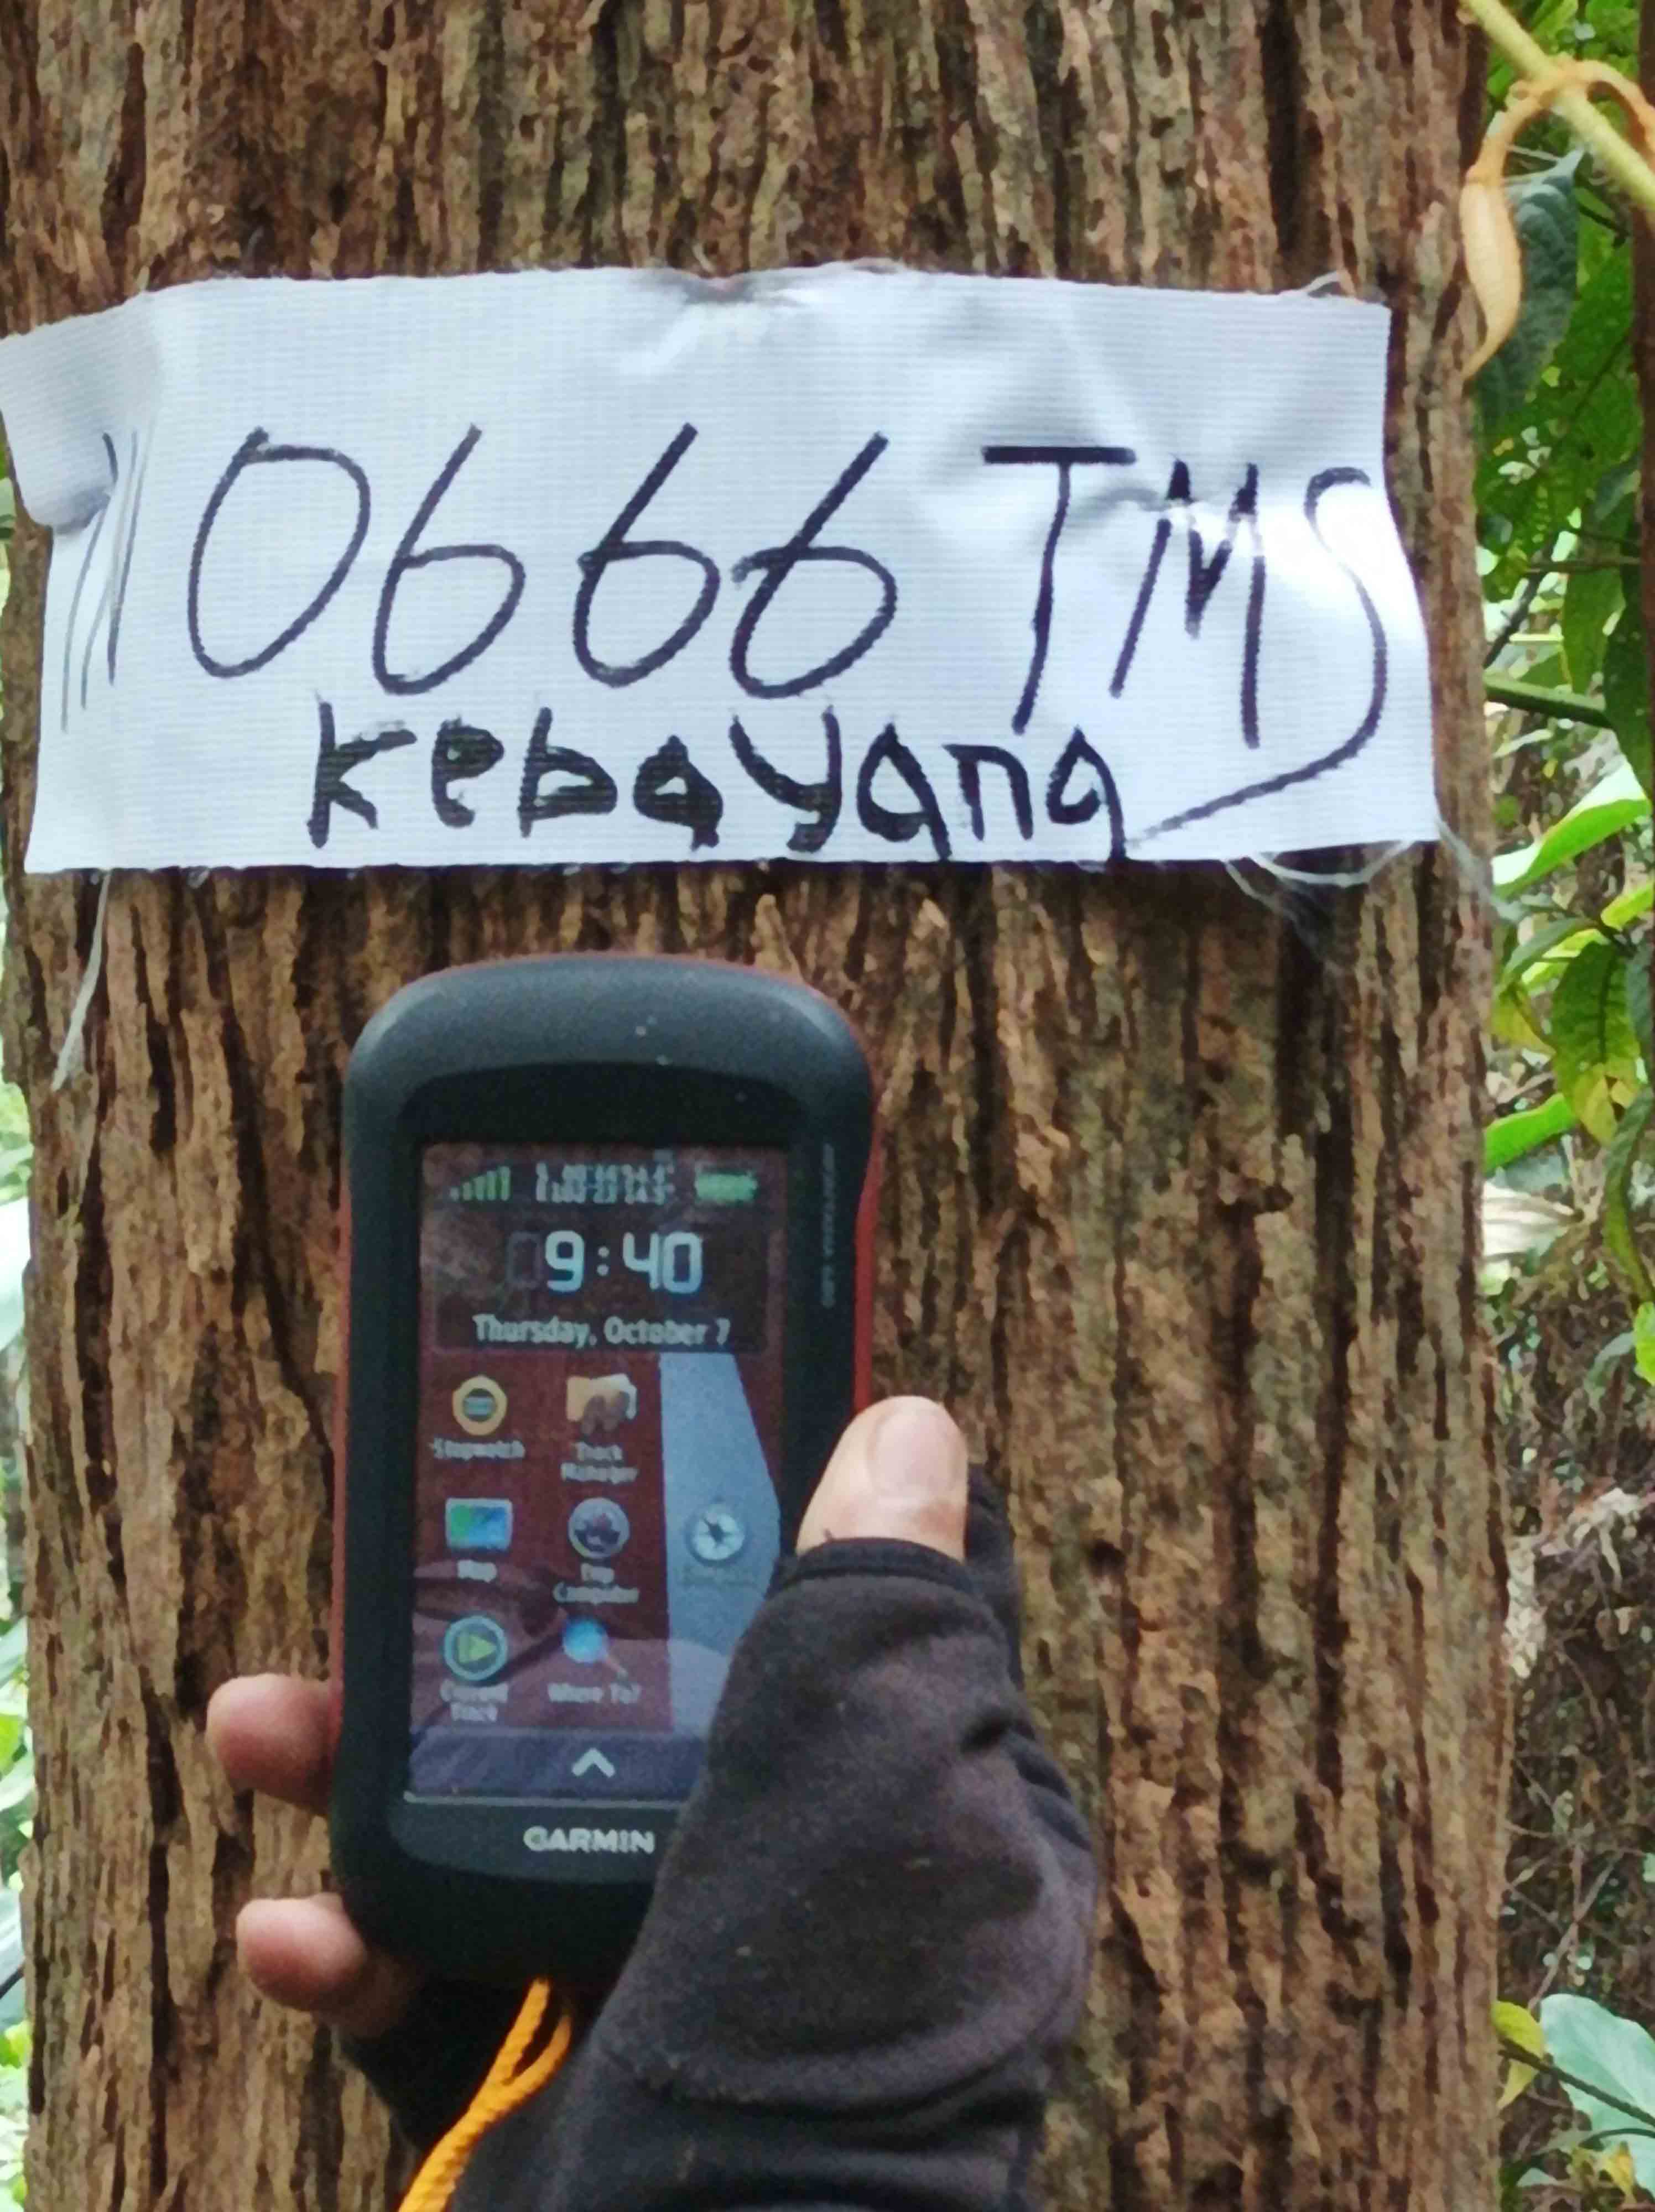 0666 TMS
kebayang
9:40
Thursday, October 7
Stopwatch
Track
Manager
Map
Trip
Computer
Compass
Current
Track
Where To?
GARMIN